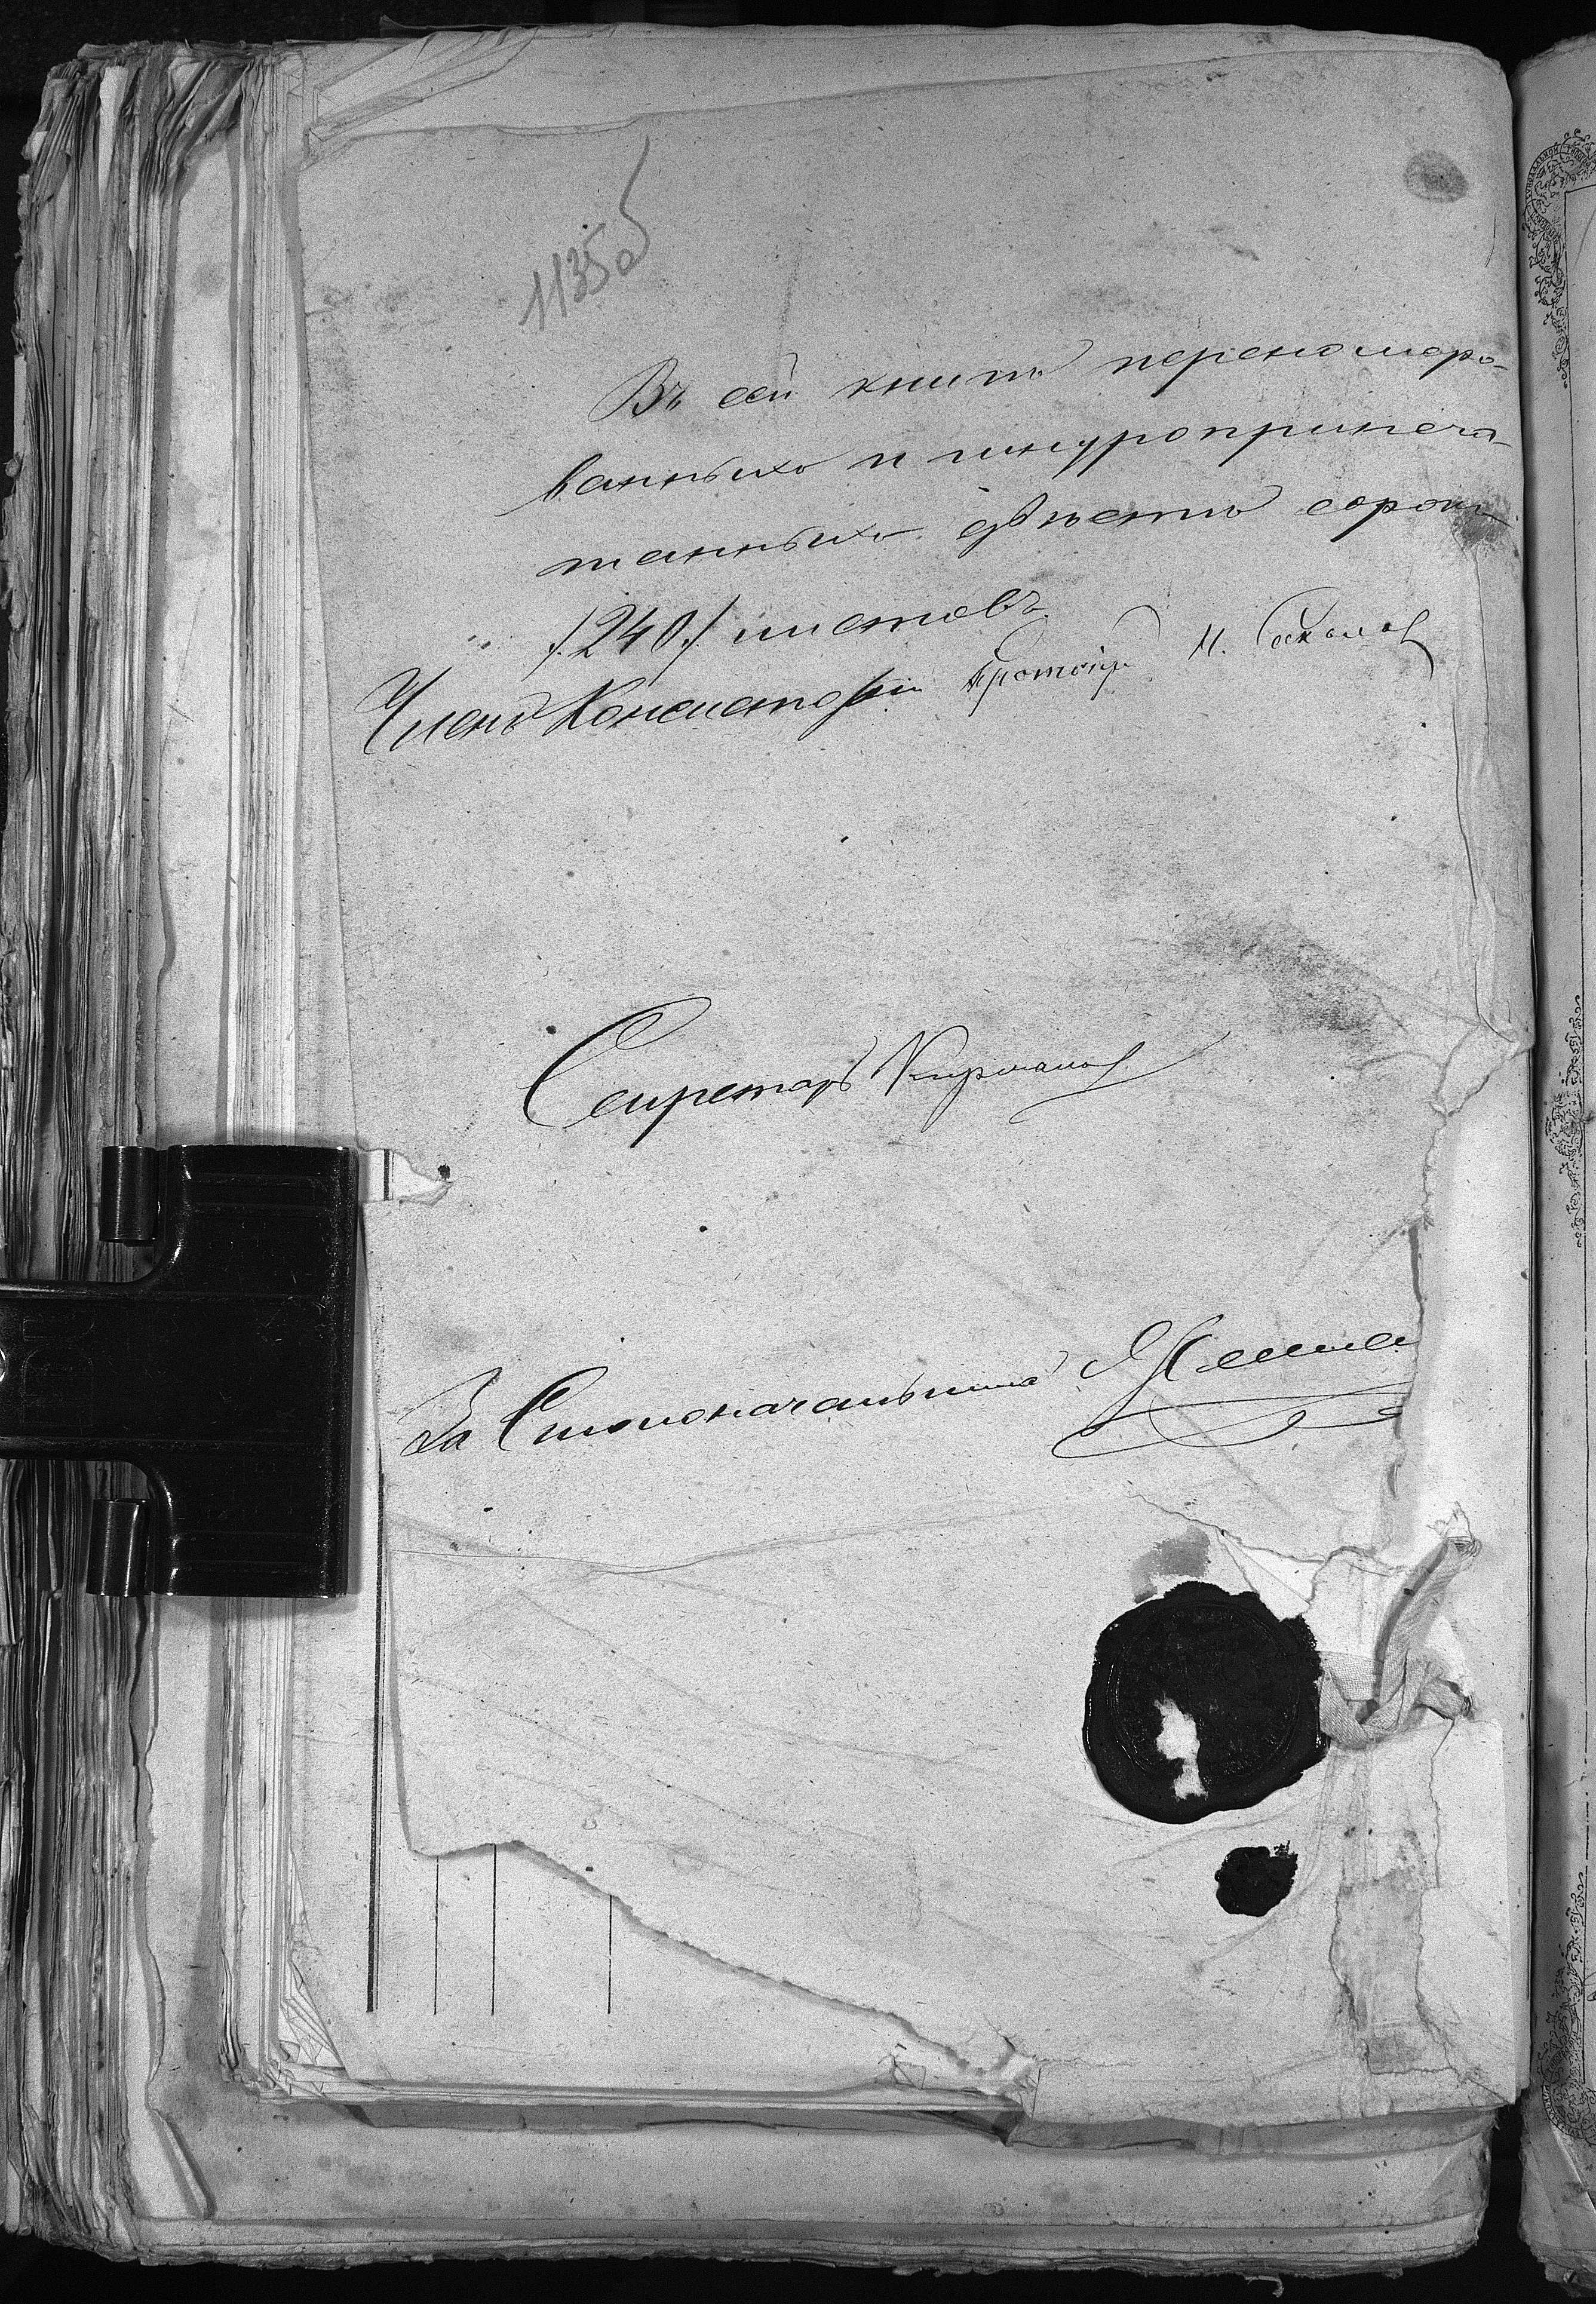 1135об
Въ сей книгѣ переномеро-
ванныхъ и шнуроприпеча-
танныхъ двѣсти сорокъ
/240/ листовъ.
Членъ Консисторіи Протоіер. Н. Соколов
Секретарь
За Столоначальника